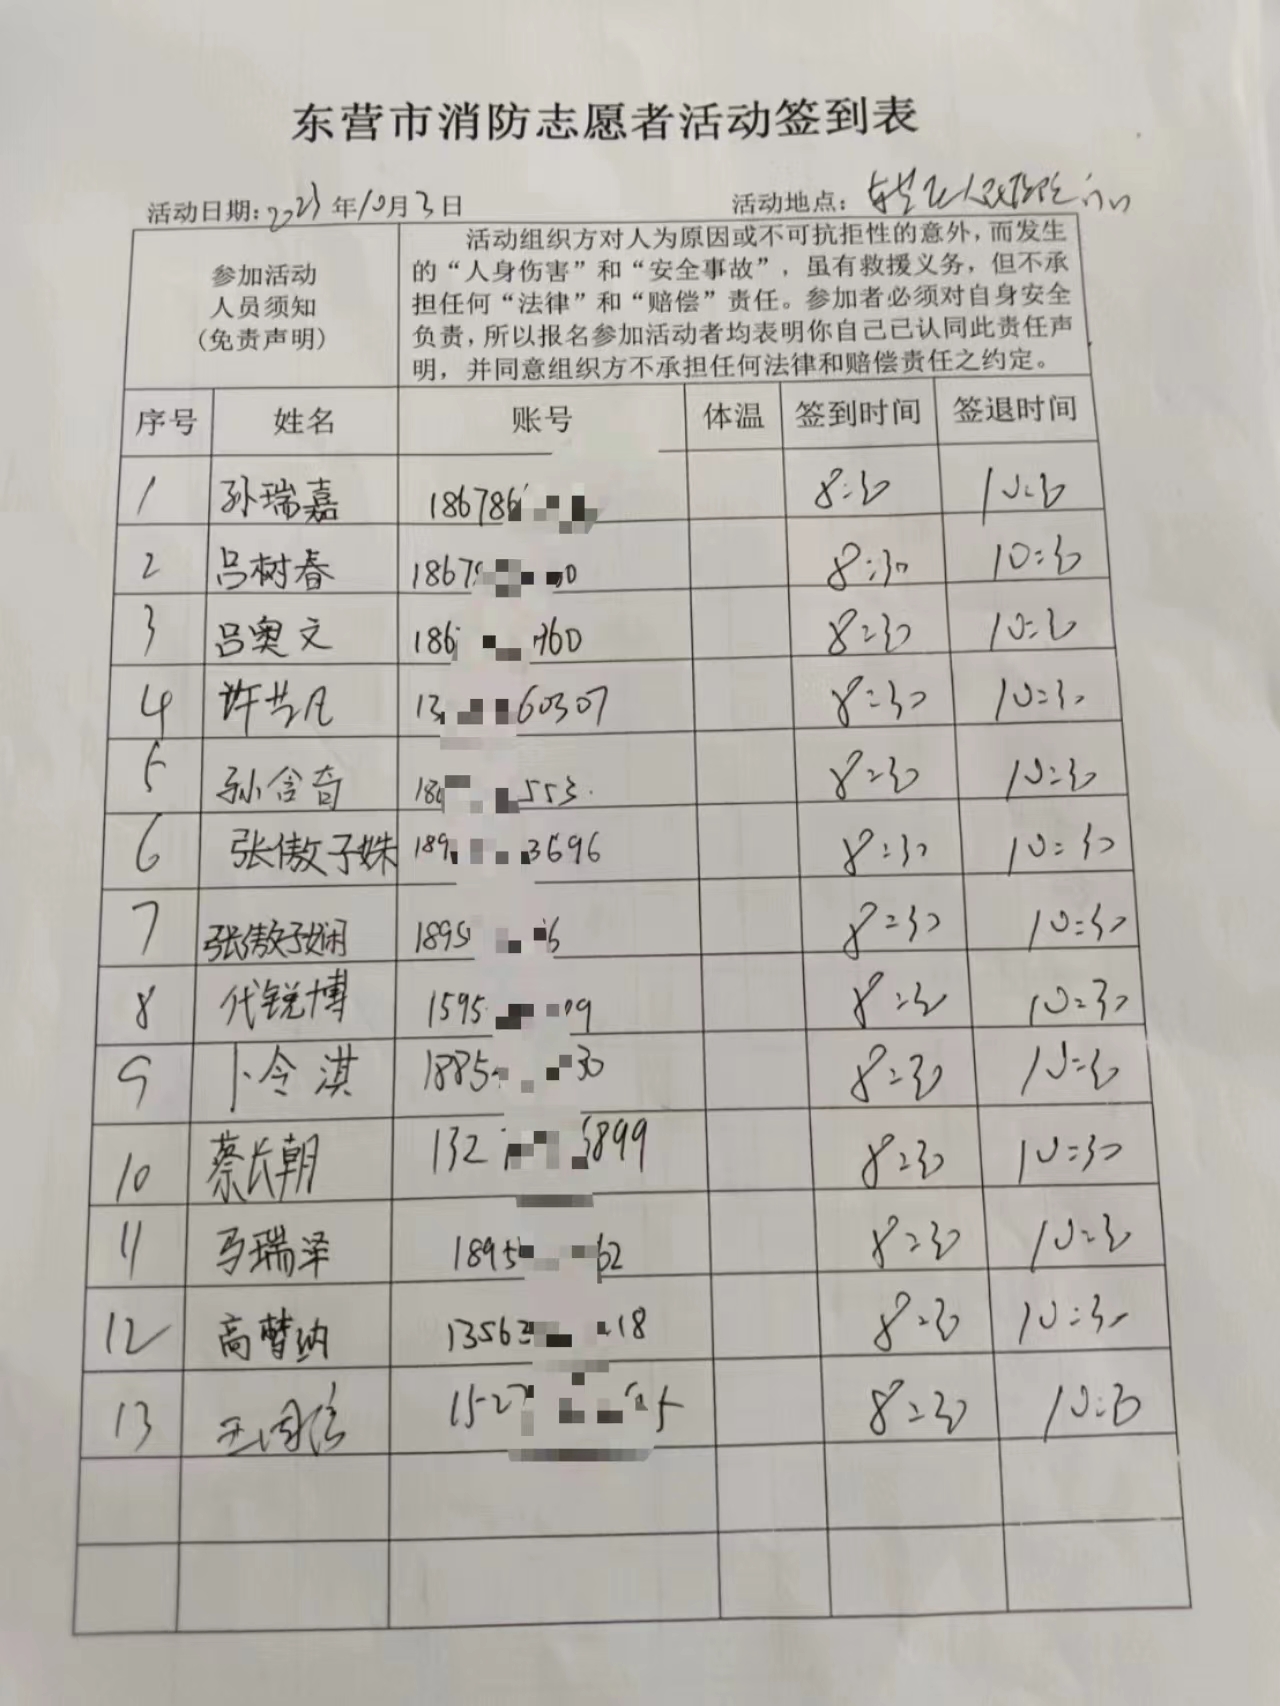 东营市消防志愿者活动签到表
活动日期：2023年10月3日 活动地点：东营区人民医院门口
参加活动
人员须知
(免责声明)
活动组织方对人为原因或不可抗拒性的意外，而发生
的“人身伤害”和“安全事故”，虽有救援义务，但不承
担任何“法律”和“赔偿”责任。参加者必须对自身安全
负责，所以报名参加活动者均表明你自己已认同此责任声
明，并同意组织方不承担任何法律和赔偿责任之约定。
序号 姓名 账号 体温 签到时间 签退时间
1 孙瑞嘉 186786 8:30 10:30
2 吕树春 1867 0 8:30 10:30
3 吕奥文 186 960 8:30 10:30
4 许艺凡 13 60307 8:30 10:30
5 孙含奇 18 553 8:30 10:30
6 张傲子姝 189 3696 8:30 10:30
7 张傲子娴 1895 6 8:30 10:30
8 代锐博 1595 09 8:30 10:30
9 卜令淇 1885 30 8:30 10:30
10 蔡长朝 132 899 8:30 10:30
11 马瑞泽 1895 62 8:30 10:30
12 高梦纳 1356 18 8:30 10:30
13 152 5 8:30 10:30